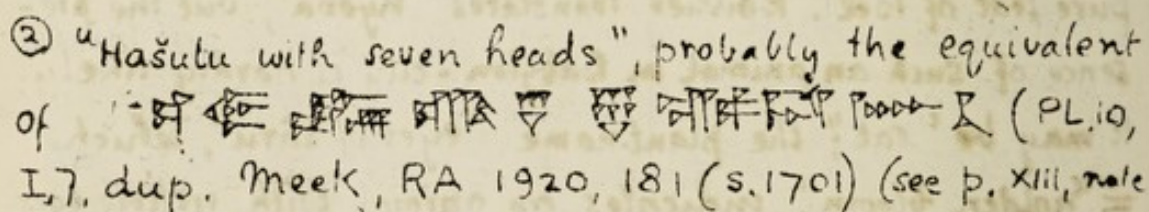 ② "Hašulu with seven heads", probably the equivalent
of (PL.10,
I,7, dup. Meek, RA 1920, 181 (S.1701) (see p. XIII, note